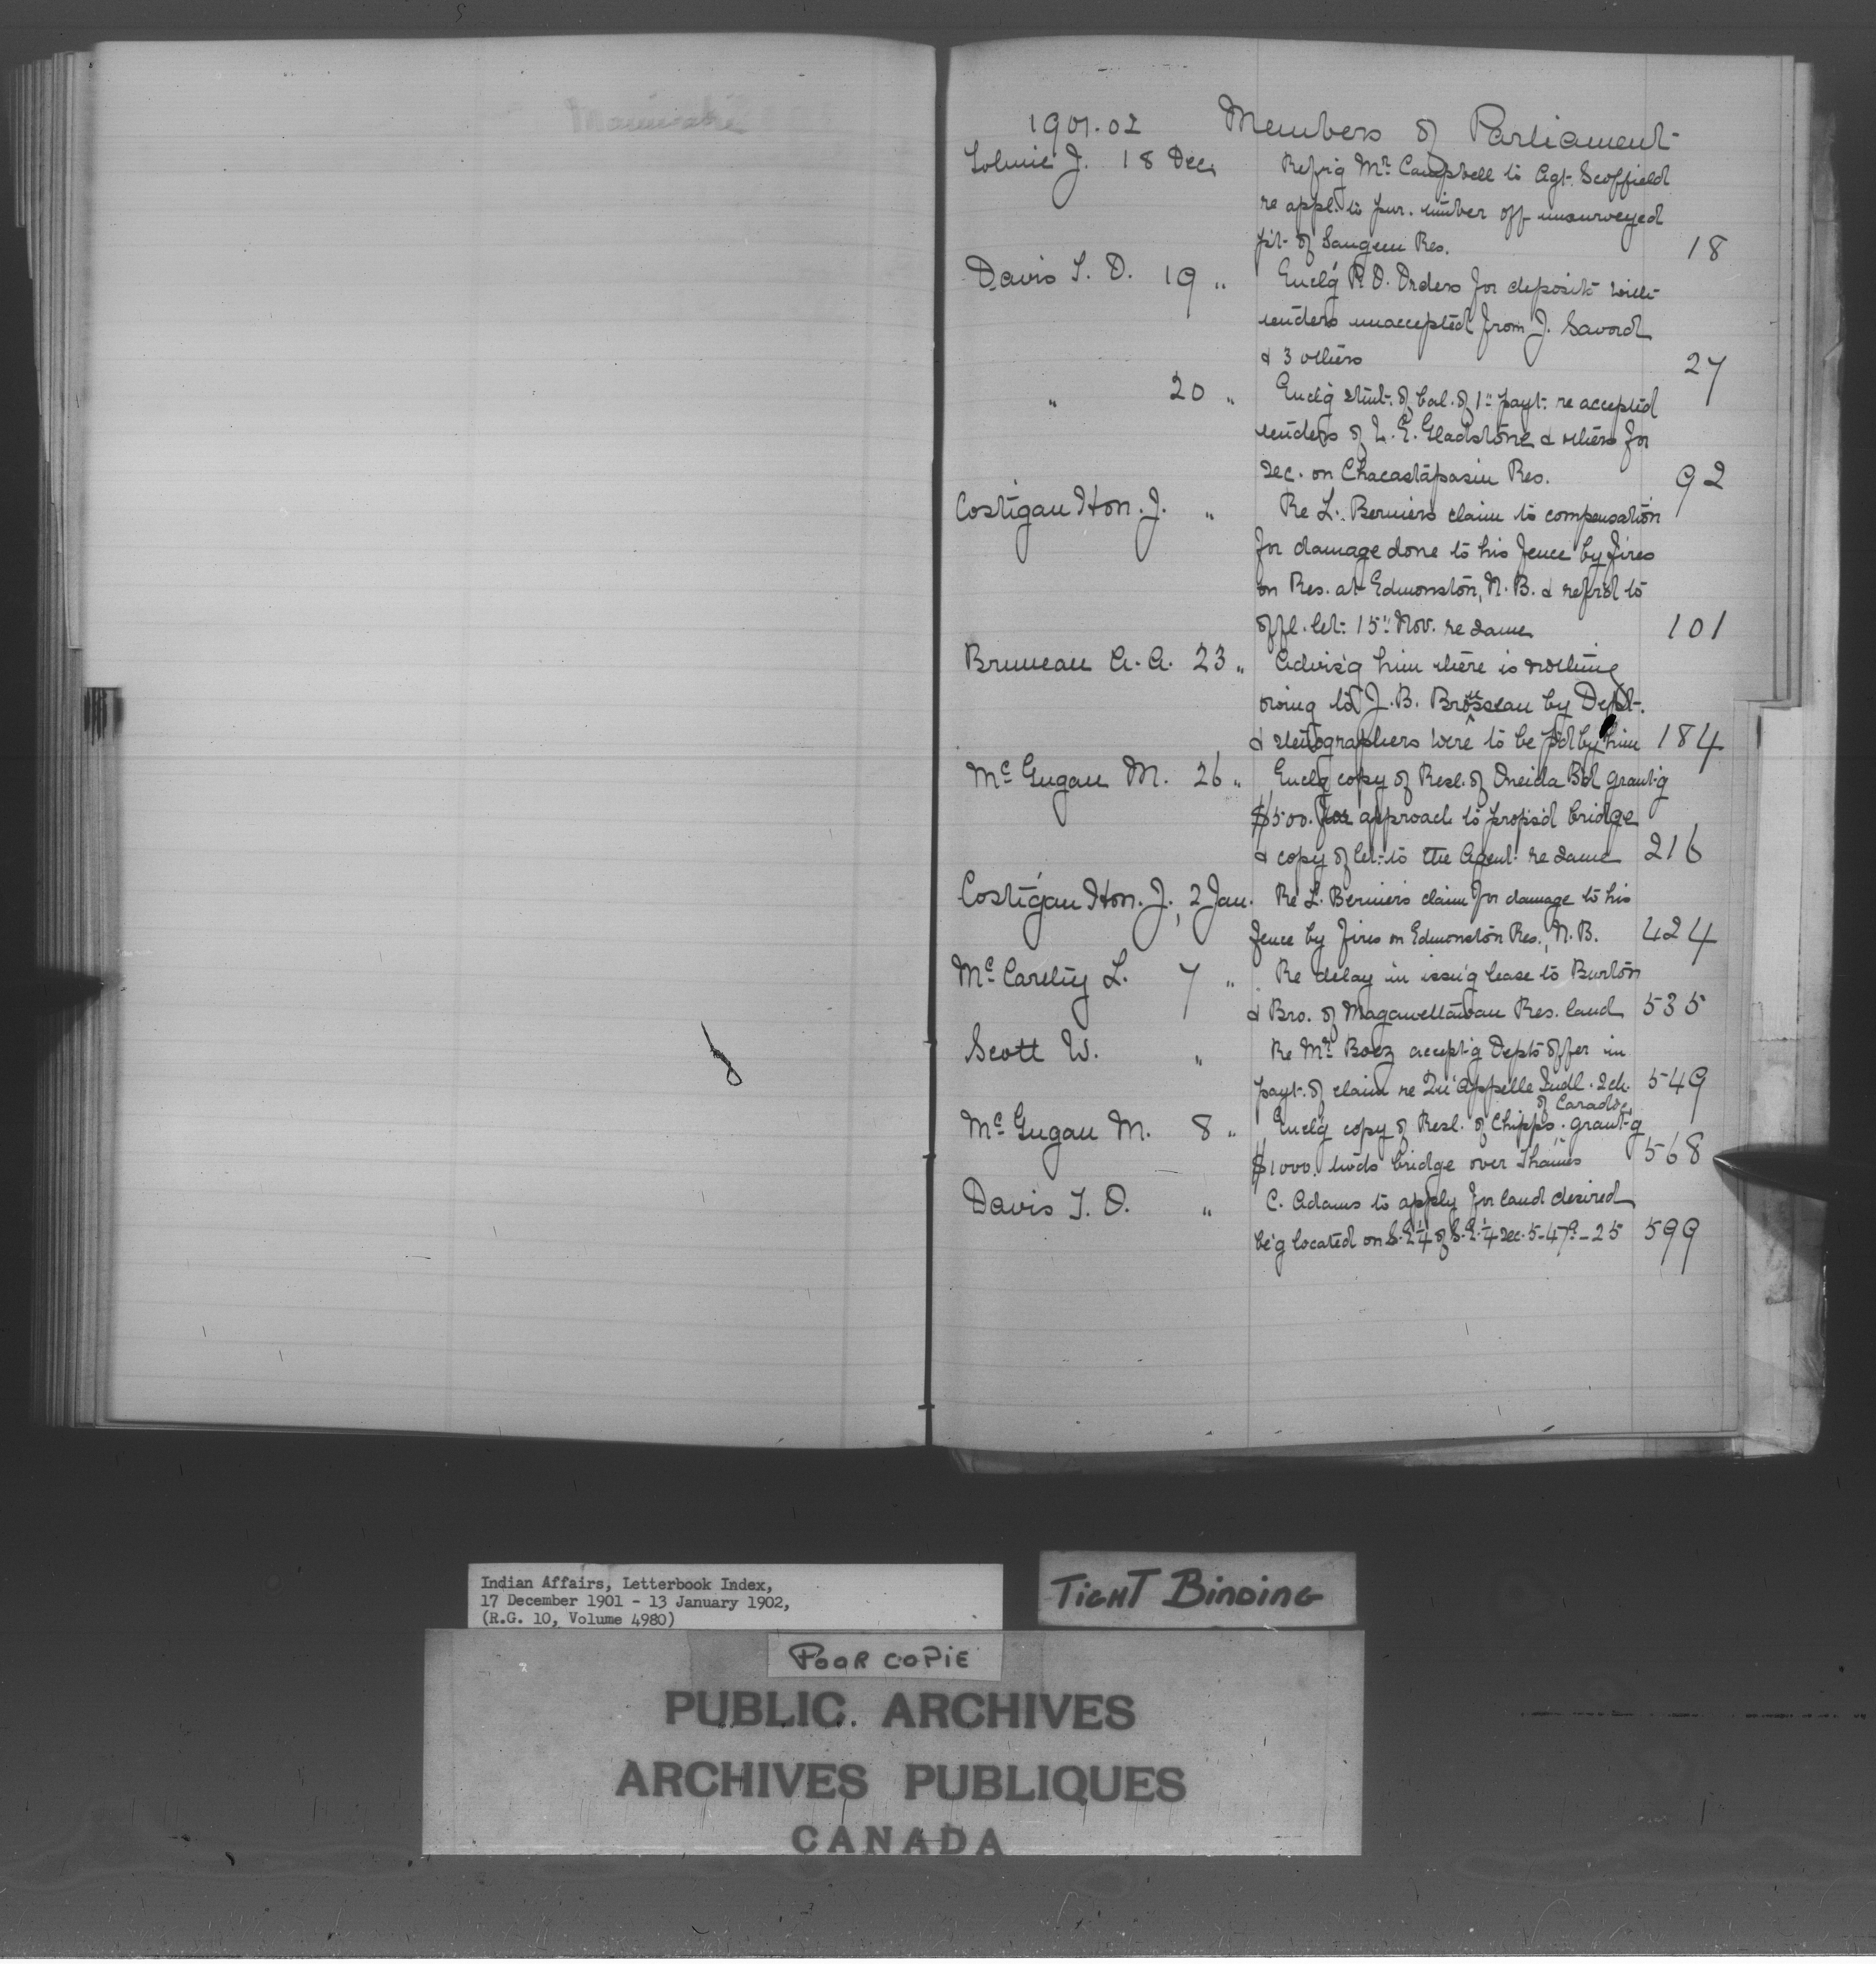 1901.02 Members of Parliament
Tolmie J. 18 Dec. Refr'g Mr. Campbell to Agt. Scoffield
re appl. to pur. timber off unsurveyed
pt. of Saugeen Res. 18
Davis T. O. 19 " Encl'g P.O. Orders for deposit with
tenders unaccepted from J. Savord
& 3 others 27
" 20 " Encl'g stmt. of bal. of 1st payt. re accepted
tenders of L. E. Gladstone & others for
sec. on Chacastapasin Res. 92
Costigan Hon. J. " Re L. Berniers claim to compensation
for damage done to his fence by fires
on Res. at Edmonston, N.B. & refer'd to
offl. let. 15" Nov. re same 101
Bruneau A. A. 23 " Advis'g him there is nothing
owing to J. B. Brousseau by Dept.
& stenographers were to be p'd by him 184
McGugan M. 26 " Encl'g copy of Resl. of Oneida Bd grant'g
$500. for approach to propos'd bridge
& copy of let. to the Agent re same 216
Costigan Hon. J. 2 Jan. Re L. Berniers claim for damage to his
fence by fires on Edmonston Res., N.B. 424
McCarthy L. 7 " Re delay in issu'g lease to Burton
& Bro. of Magawettawan Res. land 535
Scott W. " Re Mr. Boez accept'g Depts offer in
payt. of claim re Qu'Appelle Indl. Sch. 549
McGugan M. 8 " Encl'g copy of Resl. of Chipps. of Caradoc grant'g
$1000. twds bridge over Thames 568
Davis T. O. " C. Adams to apply for land desired
be'g located on S.E¼ of S.E.¼ sec. 5-47A-25 599
Indian Affairs, Letterbook Index,
17 December 1901 - 13 January 1902,
(R.G. 10, Volume 4980)
TIGHT BINDING
POOR COPIE
PUBLIC ARCHIVES
ARCHIVES PUBLIQUES
CANADA